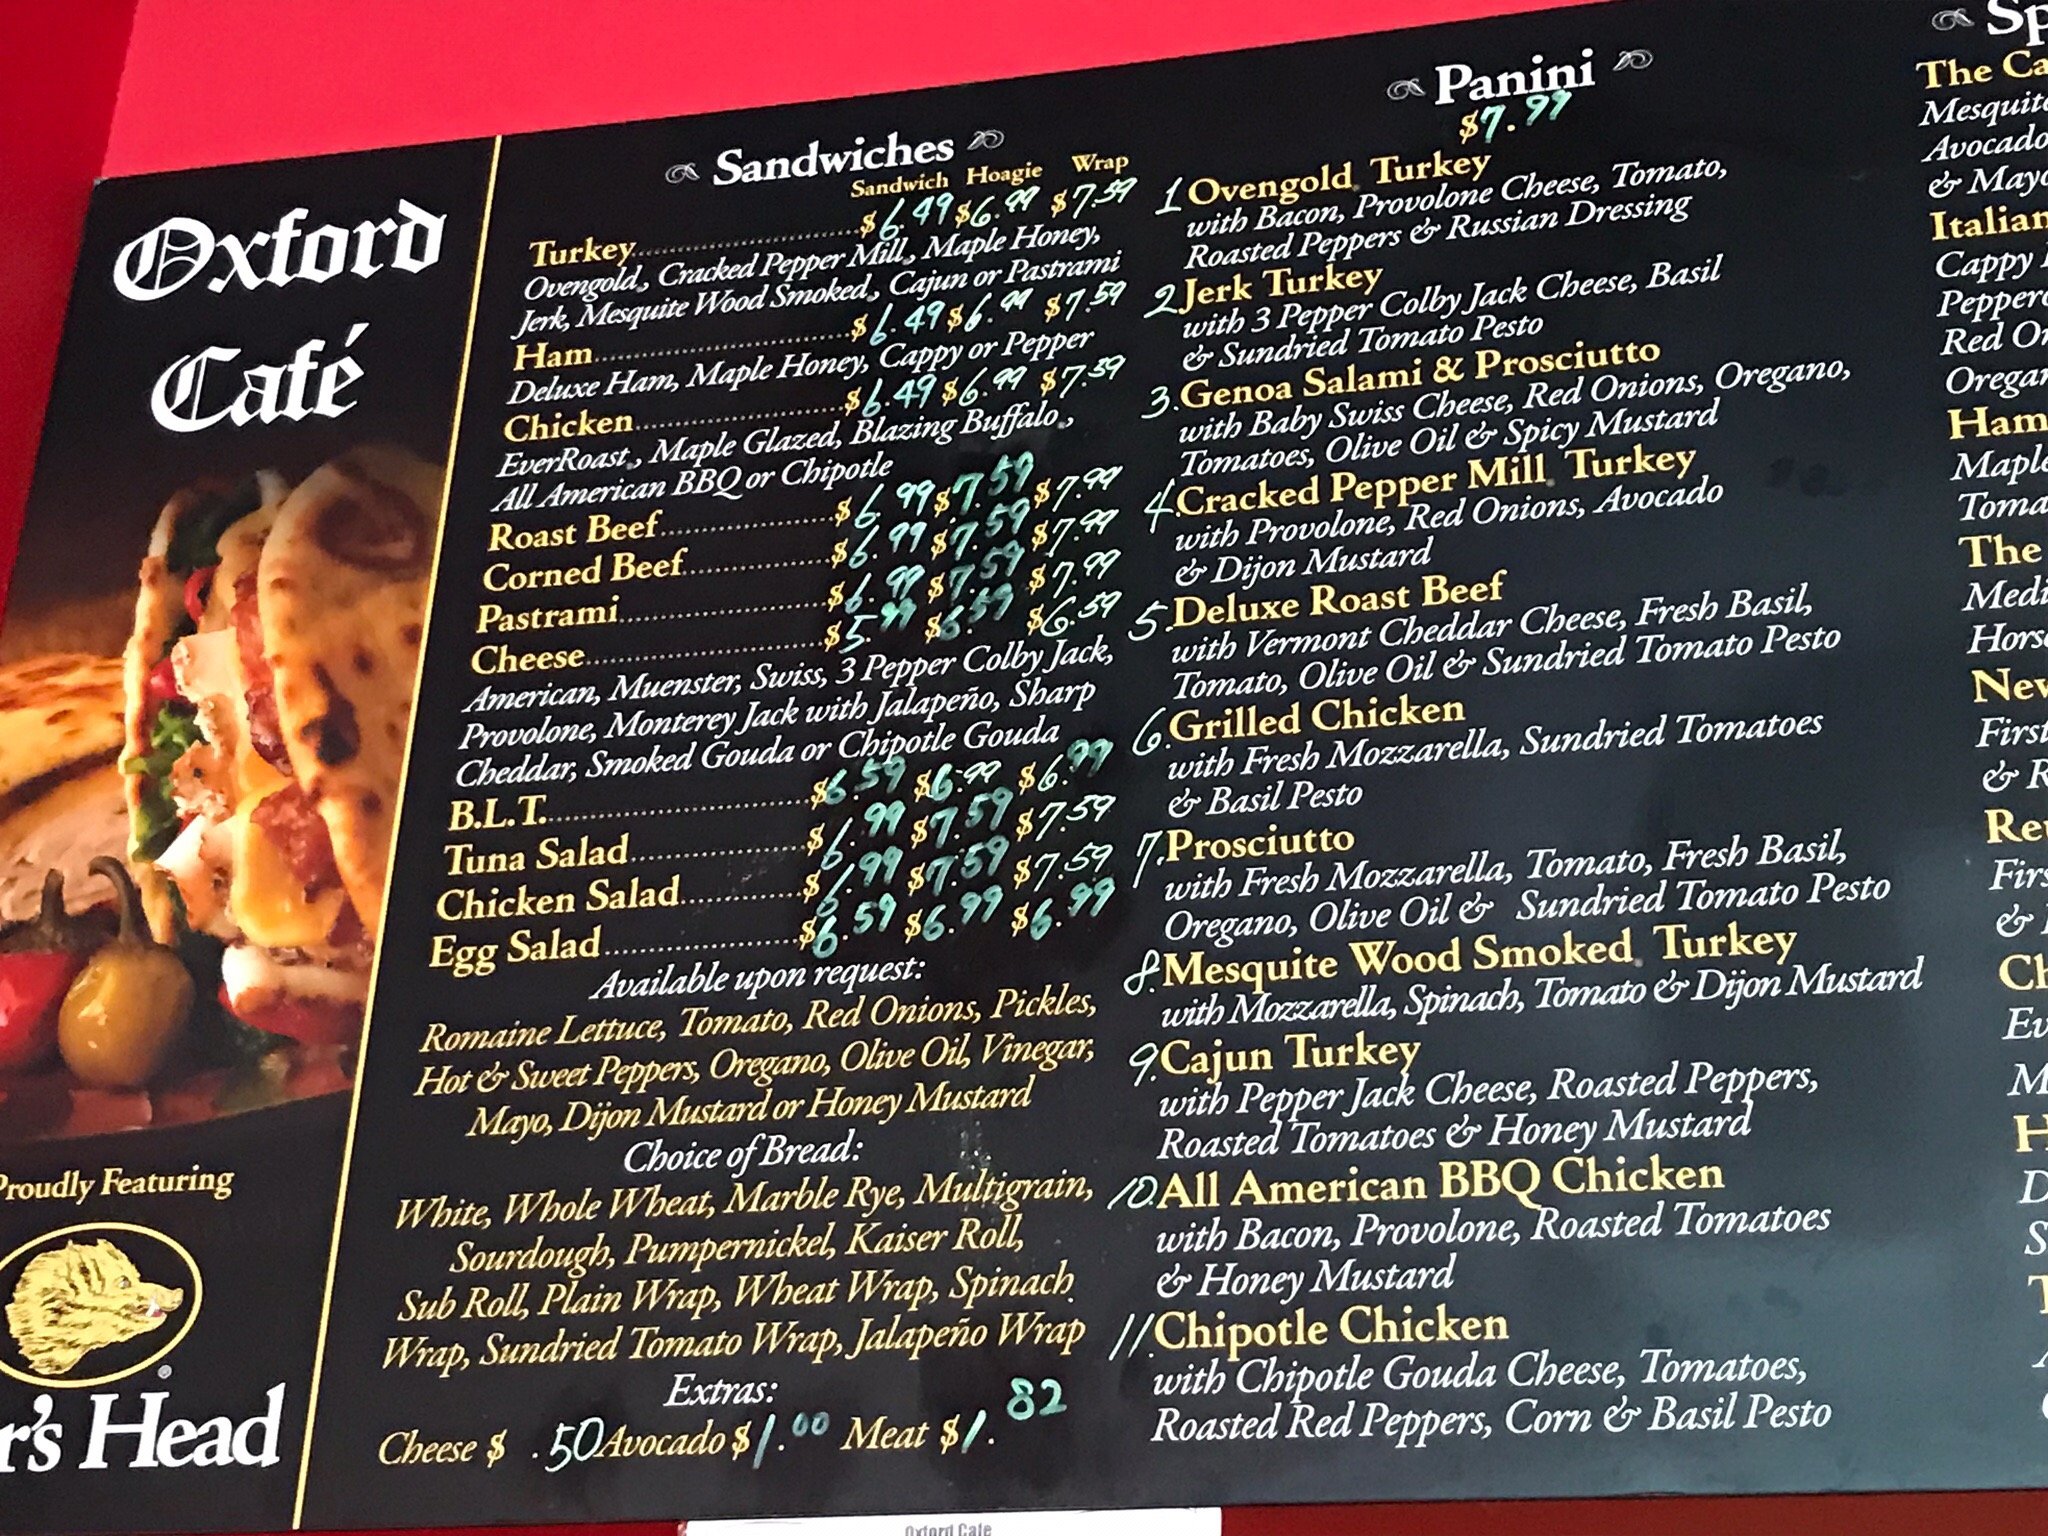 Oxford
Café
Proudly Featuring
Head
Sandwiches
Sandwich Hoagie Wrap
Turkey $6.49 $6.99 $7.59
Ovengold, Cracked Pepper Mill, Maple Honey,
Jerk, Mesquite Wood Smoked, Cajun or Pastrami
Ham $6.49 $6.99 $7.59
Deluxe Ham, Maple Honey, Cappy or Pepper
Chicken $6.49 $6.99 $7.59
EverRoast, Maple Glazed, Blazing Buffalo,
All American BBQ or Chipotle
Roast Beef $6.99 $7.59 $7.99
Corned Beef $6.99 $7.59 $7.99
Pastrami $6.99 $7.59 $7.99
Cheese $5.99 $6.59 $6.59
American, Muenster, Swiss, 3 Pepper Colby Jack,
Provolone, Monterey Jack with Jalapeño, Sharp
Cheddar, Smoked Gouda or Chipotle Gouda
B.L.T. $6.59 $6.99 $6.99
Tuna Salad $6.99 $7.59 $7.59
Chicken Salad $6.99 $7.59 $7.59
Egg Salad $6.59 $6.99 $6.99
Available upon request:
Romaine Lettuce, Tomato, Red Onions, Pickles,
Hot & Sweet Peppers, Oregano, Olive Oil, Vinegar,
Mayo, Dijon Mustard or Honey Mustard
Choice of Bread:
White, Whole Wheat, Marble Rye, Multigrain,
Sourdough, Pumpernickel, Kaiser Roll,
Sub Roll, Plain Wrap, Wheat Wrap, Spinach
Wrap, Sundried Tomato Wrap, Jalapeño Wrap
Extras:
Cheese $ .50 Avocado $1.00 Meat $1.82
Panini
$7.99
1 Ovengold Turkey
with Bacon, Provolone Cheese, Tomato,
Roasted Peppers & Russian Dressing
2 Jerk Turkey
with 3 Pepper Colby Jack Cheese, Basil
& Sundried Tomato Pesto
3. Genoa Salami & Prosciutto
with Baby Swiss Cheese, Red Onions, Oregano,
Tomatoes, Olive Oil & Spicy Mustard
4. Cracked Pepper Mill Turkey
with Provolone, Red Onions, Avocado
& Dijon Mustard
5. Deluxe Roast Beef
with Vermont Cheddar Cheese, Fresh Basil,
Tomato, Olive Oil & Sundried Tomato Pesto
6. Grilled Chicken
with Fresh Mozzarella, Sundried Tomatoes
& Basil Pesto
7. Prosciutto
with Fresh Mozzarella, Tomato, Fresh Basil,
Oregano, Olive Oil & Sundried Tomato Pesto
8. Mesquite Wood Smoked Turkey
with Mozzarella, Spinach, Tomato & Dijon Mustard
9. Cajun Turkey
with Pepper Jack Cheese, Roasted Peppers,
Roasted Tomatoes & Honey Mustard
10. All American BBQ Chicken
with Bacon, Provolone, Roasted Tomatoes
& Honey Mustard
11. Chipotle Chicken
with Chipotle Gouda Cheese, Tomatoes,
Roasted Red Peppers, Corn & Basil Pesto
The
Mesquite
Avocado
& Mayo
Italian
Cappy
Red
Ham
The
Oxford Cafe